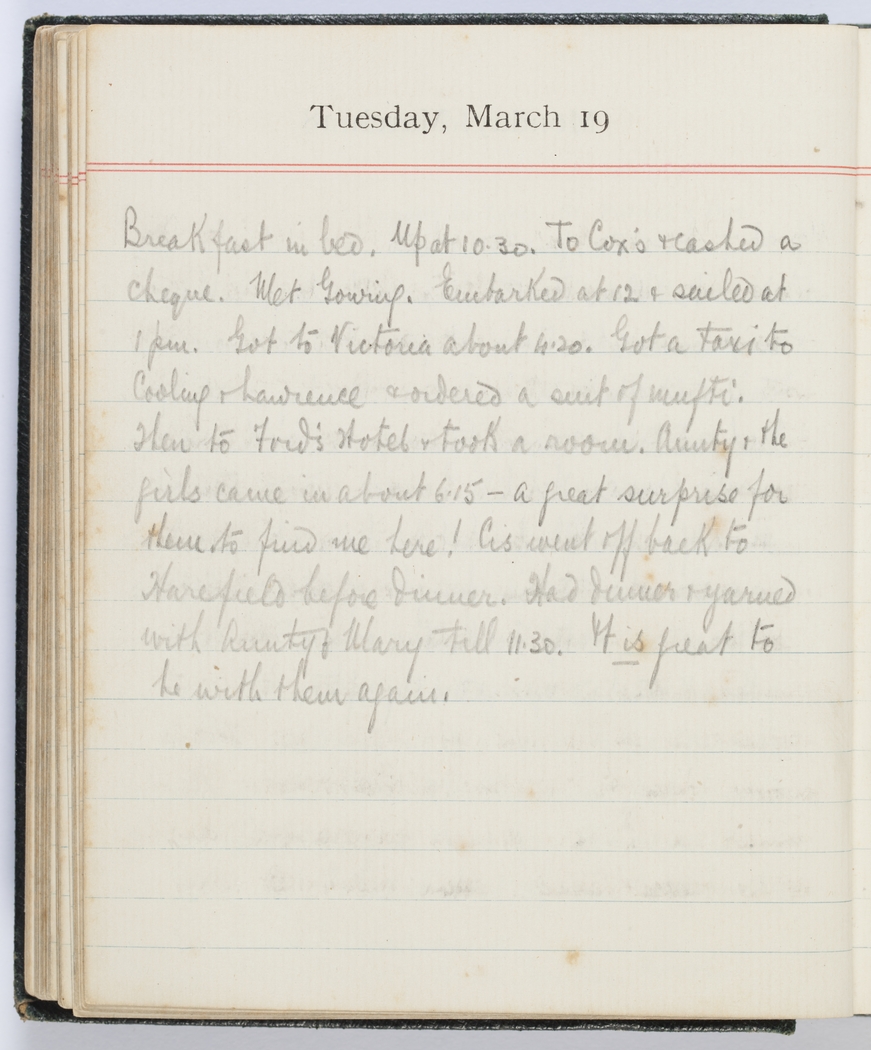 Tuesday, March 19
Breakfast in bed. Up at 10.30. To Cox's & cashed a
cheque. Met Gowing. Embarked at 12 & sailed at
1 pm. Got to Victoria about 4.20. Got a taxi to
Cooling & Lawrence & ordered a suit of mufti.
Then to Ford's Hotel & took a room. Aunty & the
girls came in about 6.15 - a great surprise for
them to find me here! Cis went off back to
Harefield before dinner. Had dinner & yarned
with Aunty & Mary till 11.30. It is great to
be with them again.